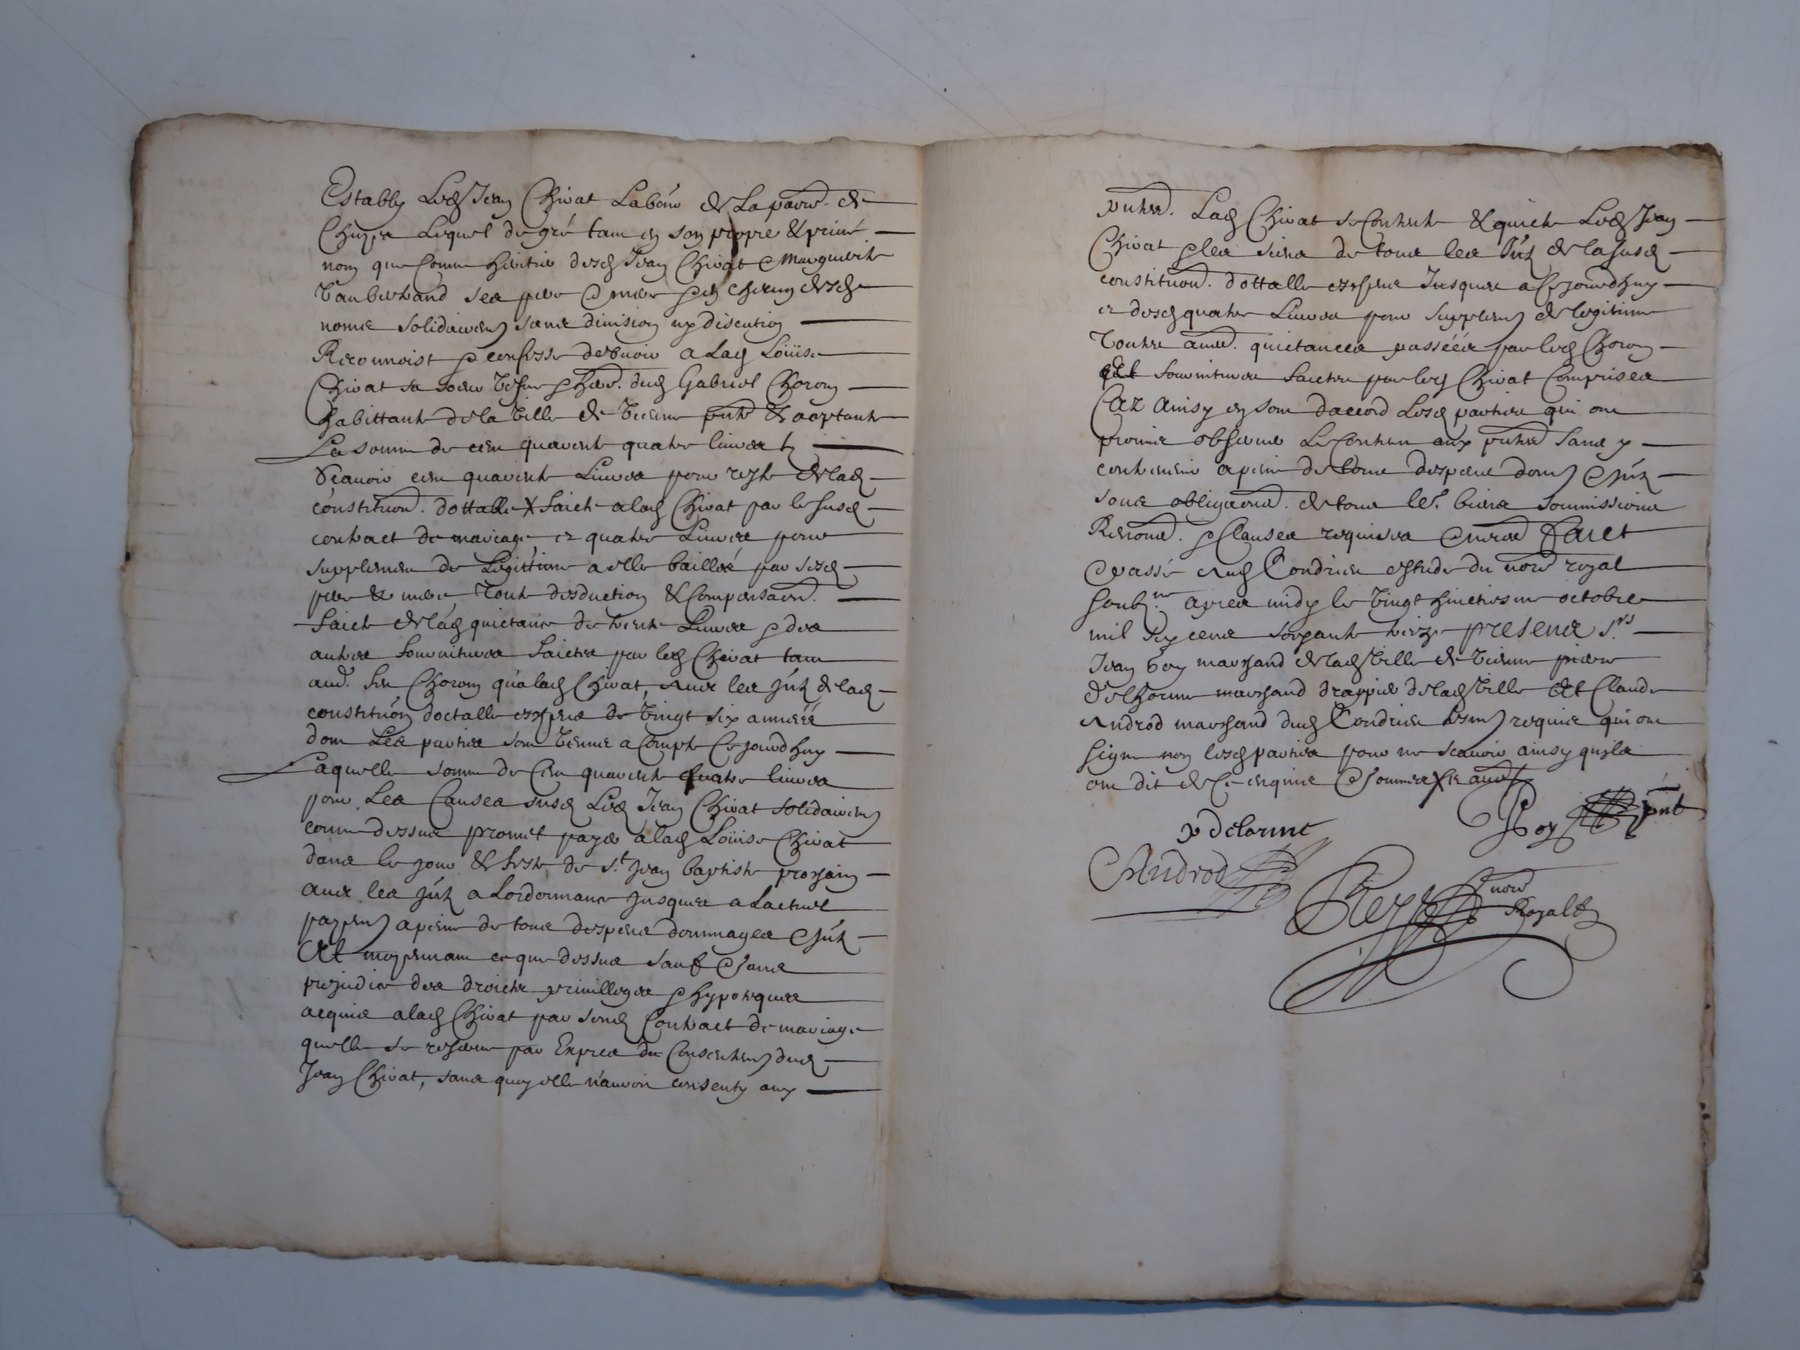 Establÿ Led Jean Chivat Labour de La parr. de
lequel de gré tam en son propre & privé
nom que comme heritier desd Jean Chivat & Marguerite
ses pere & mere & en chacun desd
noms solidairem sans division ny discution
Reconnoist & confesse debvoir a Lad Loüise
Chivat sa soeur vefve & her. dud Gabriel Choron
habittante de la ville de Vienne pnte & acceptante
La somme de cen quarente quatre livres
Scavoir cen quarente Livres pour reste de lad
constituon. dottalle faicte a lad Chivat par le susd
contract de mariage et quatre Livres pour
supplemen de Legittime a elle baillée par sesd
pere & mere tout desduction & compensaon.
faicte de lad quictance de trente Livres & des
autres fournitures faictes par led Chivat tam
aud. feu Choron qu'a lad Chivat, avec les jntz de lad
constituon doctalle espace de vingt six années
dom Les parties som venues a compte Ce jourdhuy
Laquelle somme de Cen quarente quatre livres
pour Les Causes susd Led Jean Chivat solidairem
comme dessus promet payer a lad Loüise Chivat
dans le jour & feste de St Jean baptiste prochain
avec les jntz a Lordonnance jusques a Lactuel
payem a peine de tous despens dommages & jntz
Et moyenam ce que dessus sauf & sans
prejudice des droicts privilleges & hypoteques
acquis a lad Chivat par send Contract de mariage
quelle se reserve par Expres du Consentem dud
Jean Chivat, sans quoy elle n'auroit consenty aux
pntes. Lad Chivat se contente & quicte Led Jean
Chivat & les siens de tous les jntz de la susd
constituon. dottalle jusques a Ce jourdhuy
et desd quatre Livres pour supplem de legitime
toutes autres. quictances passées par led Choron
Et fournitures faictes par led Chivat Comprises
Car ainsy en som daccord Lesd parties qui om
promis observer Le Contenu aux pntes sans y
contrevenir a peine de tous despens dom & jntz
sous obligaons. de tous les. biens soumissions
Renons. & Clauses requises Faict
& passé aud Condrieu estude du nore royal
soubz.ne apres midy le vingt huictiesme octobre
mil six cens soixante treize presens S.rs
Jean Roy marchand de lad ville de Vienne pierre
Delhorme marchand drappier de lad ville Et Claude
Androd marchand dud Condrieu tesm requis qui om
signe non lesd parties pour ne scavoir ainsy quils
om dit de Ce enquis & sommes
p delorme
Roy pnt
Androd
nore
Royal